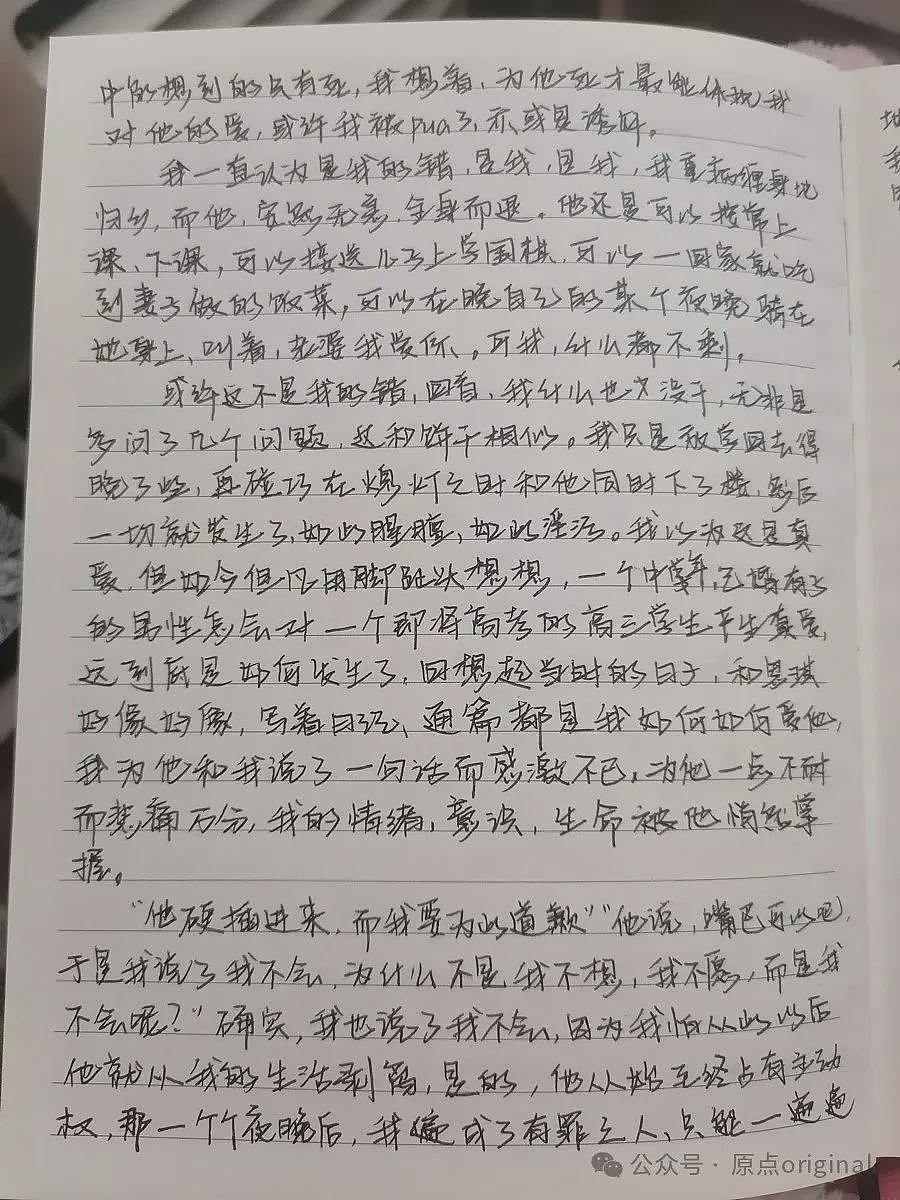 中能想到的只有死,我想着,为他死才最能体现我
对他的爱,或许我被pua了,亦或是诱奸。
我一直认为是我的错,是我,是我,我重病缠身地
归乡,而他,安然无恙,全身而退。他还是可以按常上
课、下课,可以接送儿子上学围棋,可以一回家就吃
到妻子做的饭菜,可以在晚自习的某个夜晚骑在
她身上,叫着,老婆我爱你、。可我,什么都不剩。
或许这不是我的错,回看,我什么也没干,无非是
多问了几个问题,这和饼干相似。我只是放学回去得
晚了些,再碰巧在熄灯之时和他同时下了楼,然后
一切就发生了,如此腥膻,如此淫污。我以为这是真
爱,但如今但凡用脚趾头想想,一个中年,已婚有子
的男性怎会对一个即将高考的高三学生产生真爱,
这到底是如何发生了,回想起当时的日子,和思琪
好像好像,写着日记,通篇都是我如何如何爱他,
我为他和我说了一句话而感激不已,为他一点不耐
而悲痛万分,我的情绪,意识,生命被他悄然掌
握。
“他硬插进来,而我要为此道歉”“他说,嘴巴可以吧,
于是我说了我不会,为什么不是我不想,我不愿,而是我
不会呢?”确实,我也说了我不会,因为我怕从此以后
他就从我的生活剥离,是的,他从始至终占有主动
权,那一个个夜晚后,我便成了有罪之人,只能一遍遍
地
我
公众号·原点original